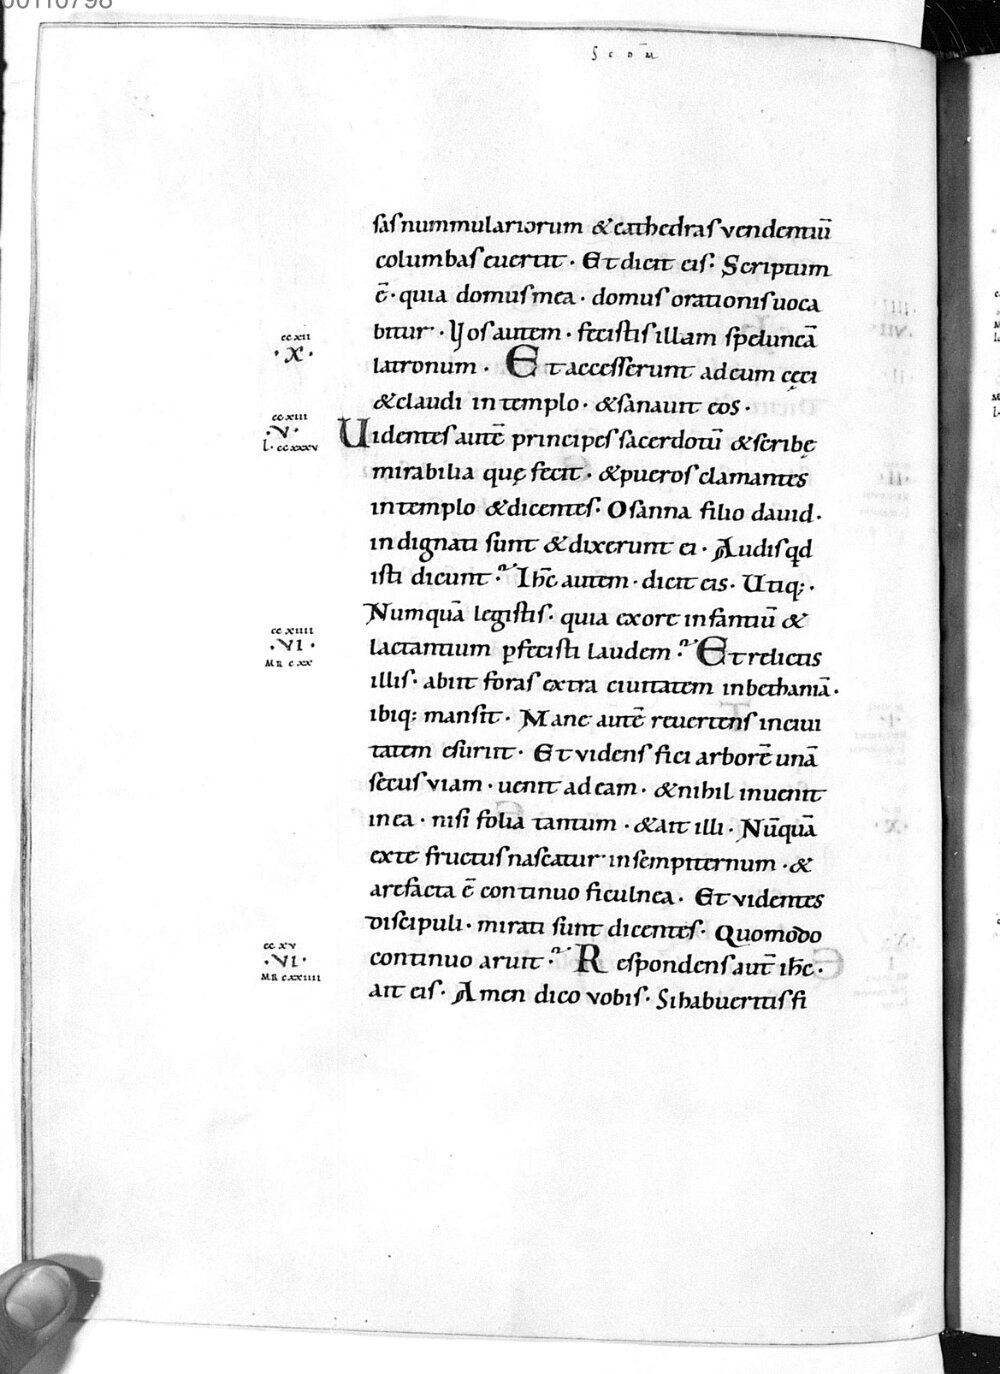 00110798
S c d m̄
sas nummulariorum & cathedras vendentiū
columbas euertit · Et dicit eis: Scriptum
ē · quia domus mea · domus orationis uoca
bitur · Vos autem · fecistis illam speluncā
latronum · Et accesserunt ad eum cęci
& claudi in templo · & sanauit eos ·
Uidentes autē principes sacerdotū & scribę
mirabilia quę fecit · & pueros clamantes
in templo & dicentes · Osanna filio dauid ·
indignati sunt & dixerunt ei · Audis qd
isti dicunt ? Ihc̄ autem · dicit eis · Utiq; ·
Numquā legistis · quia ex ore infantiū &
lactantium pfecisti laudem ? Et relictis
illis · abiit foras extra ciuitatem in bethaniā ·
ibiq; mansit · Mane autē reuertens in ciui
tatem esuriit · Et videns fici arborē unā
secus viam · uenit ad eam · & nihil inuenit
in ea · nisi folia tantum · & ait illi · Nūquā
ex te fructus nascatur in sempiternum · &
arefacta ē continuo ficulnea · Et videntes
discipuli · mirati sunt dicentes · Quomodo
continuo aruit ? Respondens aut̄ ihc̄ ·
ait eis · Amen dico vobis · Si habueritis fi
cc xii
· X ·
cc xiii
· V ·
l · cc xxxv
cc xiiii
· VI ·
MR c xx
cc xv
· VI ·
MR c xxiiii